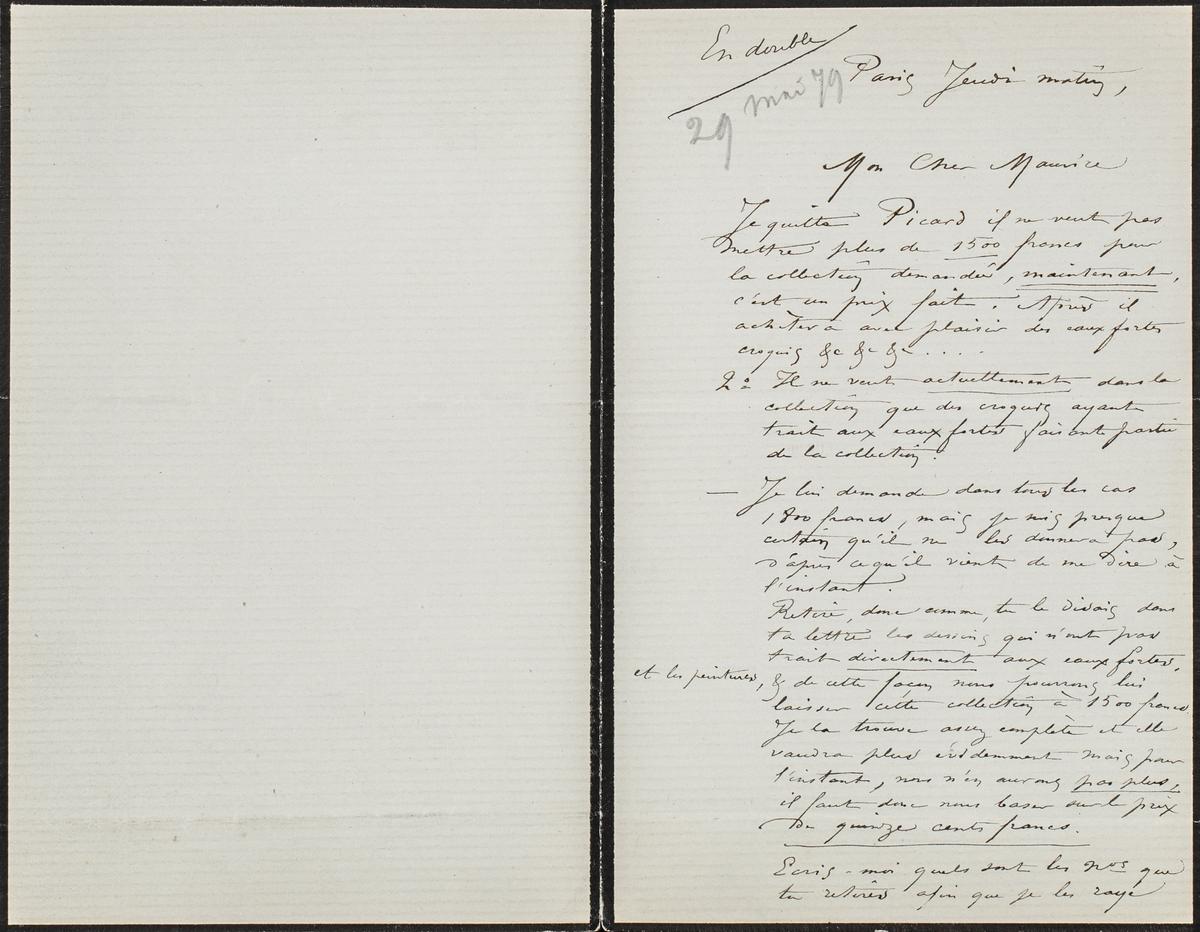 En double
29 mai 79
Paris Jeudi matin,
Mon Cher Maurice
Je quitte Picard il ne veut pas
mettre plus de 1500 francs pour
la collection demandée, maintenant,
c'est un prix fait. Après il
achètera avec plaisir des eaux fortes
croquis &c &c &c....
2º Il ne veut actuellement dans la
collection que des croquis ayant
trait aux eaux fortes faisant partie
de la collection.
— Je lui demande dans tous les cas
1800 francs, mais je suis presque
certain qu'il ne les donnera pas,
d'après ce qu'il vient de me dire à
l'instant.
Retire, donc comme, tu le disais dans
ta lettre les dessins qui n'ont pas
trait directement aux eaux fortes,
et les peintures, & de cette façon nous pourrons lui
laisser cette collection à 1500 francs
Je la trouve assez complète et elle
vaudra plus évidemment mais pour
l'instant, nous n'en aurons pas plus,
il faut donc nous baser sur le prix
de quinze cents francs.
Ecris-moi quels sont les nos que
tu retires afin que je les raye